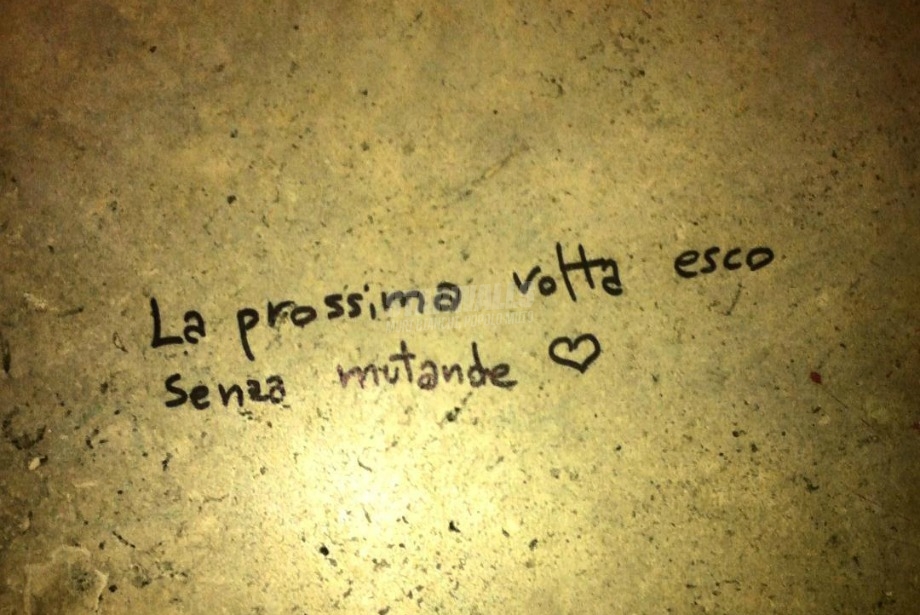 La prossima volta esco
senza mutande ♡